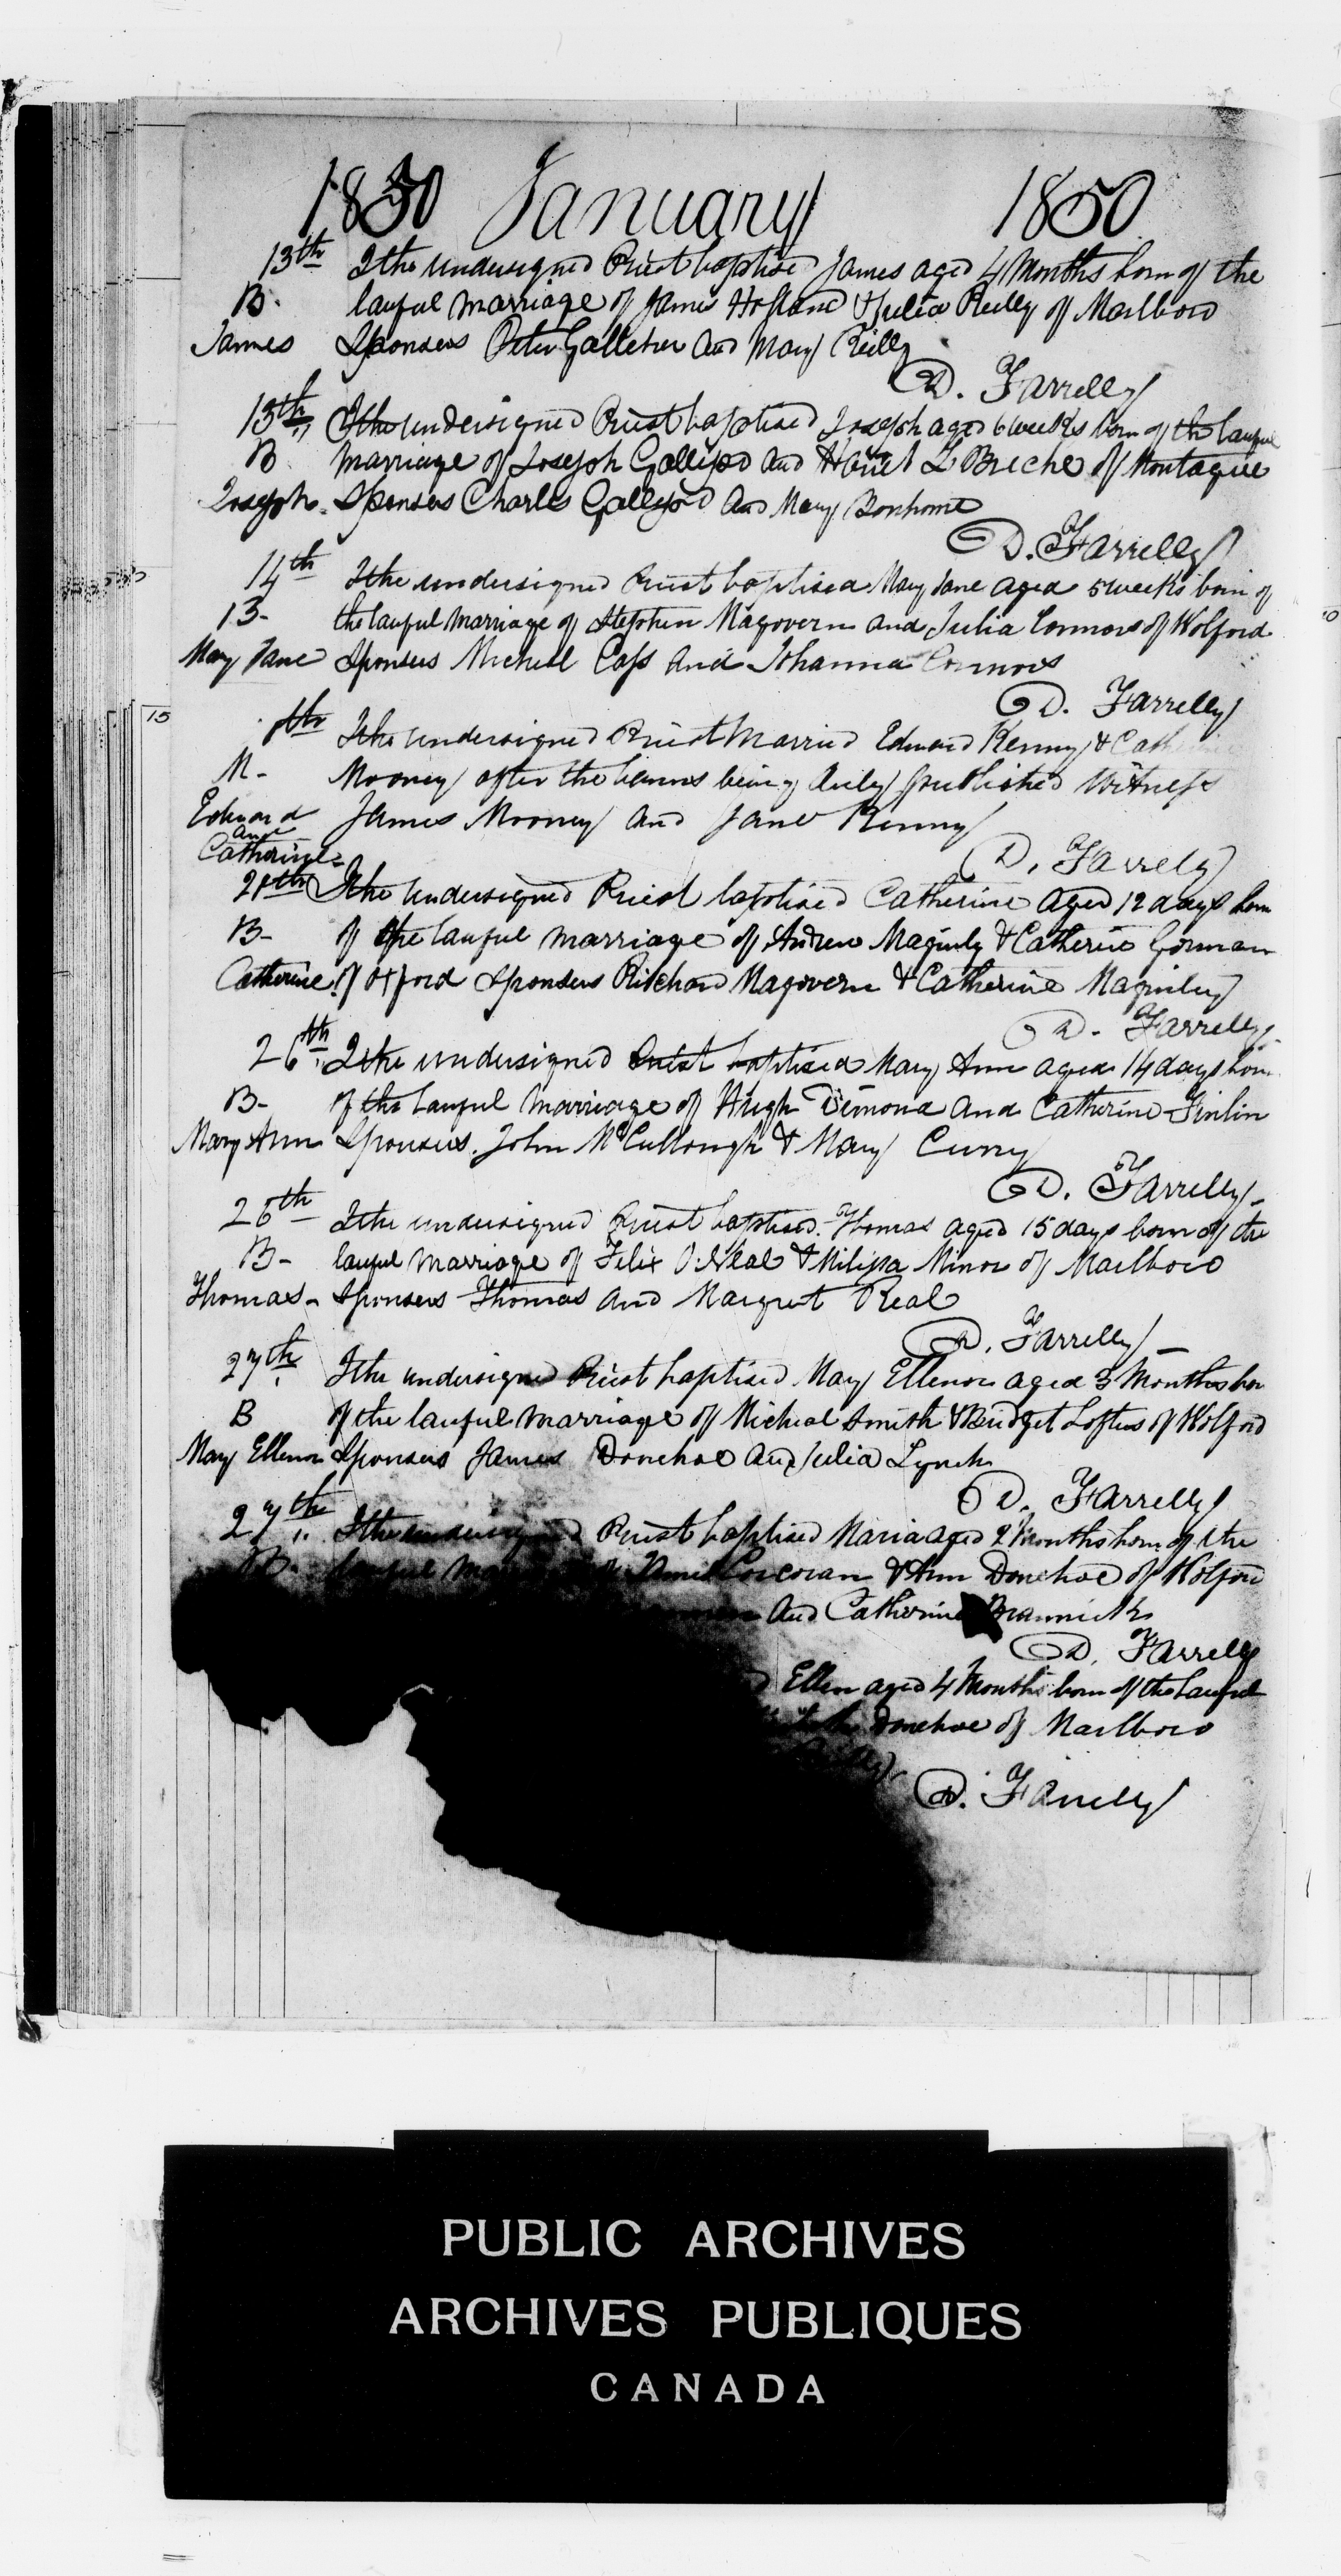 1850 January 1850
13th I the undersigned Priest baptised James aged 4 Months born of the
B. lawful marriage of James Holland & Julia Reilly of Marlboro
James Sponsers Peter Galleher and Mary Reilly
D. Farrelly
13th I the undersigned Priest baptised Joseph aged 6 weeks born of the lawful
B marriage of Joseph Gallipod and L Breche of Montague
Joseph. Sponsers Charles Gallipod and Mary Bonhome
D. Farrelly
14th I the undersigned Priest baptised Mary Jane aged 5 weeks born of
B- the lawful marriage of Stephen Magovern and Julia Connors of Wolford
Mary Jane Sponsers Micheal Cass and Johanna Connors
D. Farrelly
15
I the undersigned Priest Married Edward Kenny & Catherine
M- Mooney after the banns being duly published Witness
Edward James Mooney and Jane Kenny
and
Catherine-
D. Farrely
I the undersigned Priest baptised Catherine aged 12 days born
B- of the lawful marriage of Andrew Maginly & Catherine Gorman
Catherine. of Oxford Sponsers Ritchard Magovern & Catherine Maginley
D. Farrelly
26th I the undersigned Priest baptised Mary Ann aged 14 days born
B- of the lawful Marriage of Hugh Dimond and Catherine Finlin
Mary Ann Sponsers. John McCullough & Mary Curry
D. Farrelly-
26th I the undersigned Priest baptised Thomas aged 15 days born of the
B- lawful marriage of Felix O.Neal & Milissa Minor of Marlboro
Thomas- Sponsers Thomas and Margret Real
D. Farrelly-
27th I the undersigned Priest baptised Mary Ellenor aged 3 Months bor
B of the lawful marriage of Micheal Smith & Bridget Loftus of Wolford
Mary Ellenor Sponsers James Donehoe and Julia Lynch
D. Farrelly
27th I the undersigned Priest baptised Maria aged 2 Months born of the
B- lawful Corcoran & Ann Donehoe of Wolford
and Catherine Brannick
D. Farrelly
Ellen aged 4 Months born of the lawful
Donehoe of Marlboro
D. Farrelly
PUBLIC ARCHIVES
ARCHIVES PUBLIQUES
CANADA